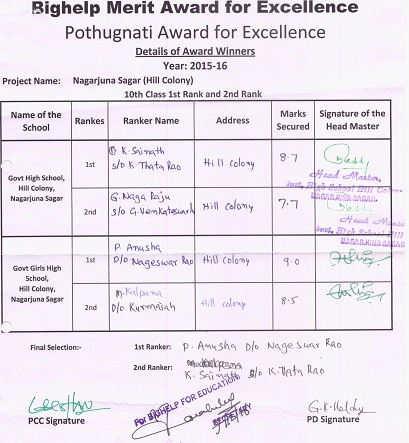 Bighelp Merit Award for Excellence
Pothugnati Award for Excellence
Details of Award Winners
Year: 2015-16
Project Name: Nagarjuna Sagar (Hill Colony)
10th Class 1st Rank and 2nd Rank
Name of the School Rankes Ranker Name Address Marks Secured Signature of the Head Master
Govt High School, Hill Colony, Nagarjuna Sagar
1st K. Sainath S/o K. Thata Rao Hill colony 8.7
Head Master
NAGARJUNA SAGAR
2nd G. Naga Raju S/o G. Venkateswarlu Hill colony 7.7
Head Master
Govt. High School Hill
NAGARJUNA SAGAR
Govt Girls High School, Hill Colony, Nagarjuna Sagar
1st P. Anusha D/o Nageswar Rao Hill Colony 9.0
2nd M. Kalpana D/o Kurmaiah Hill colony 8.5
Final Selection:- 1st Ranker: P. Anusha D/o Nageswar Rao
2nd Ranker:
K. Sainath S/o K. Thata Rao
FOR BIGHELP FOR EDUCATION
SECRETARY
PCC Signature PD Signature